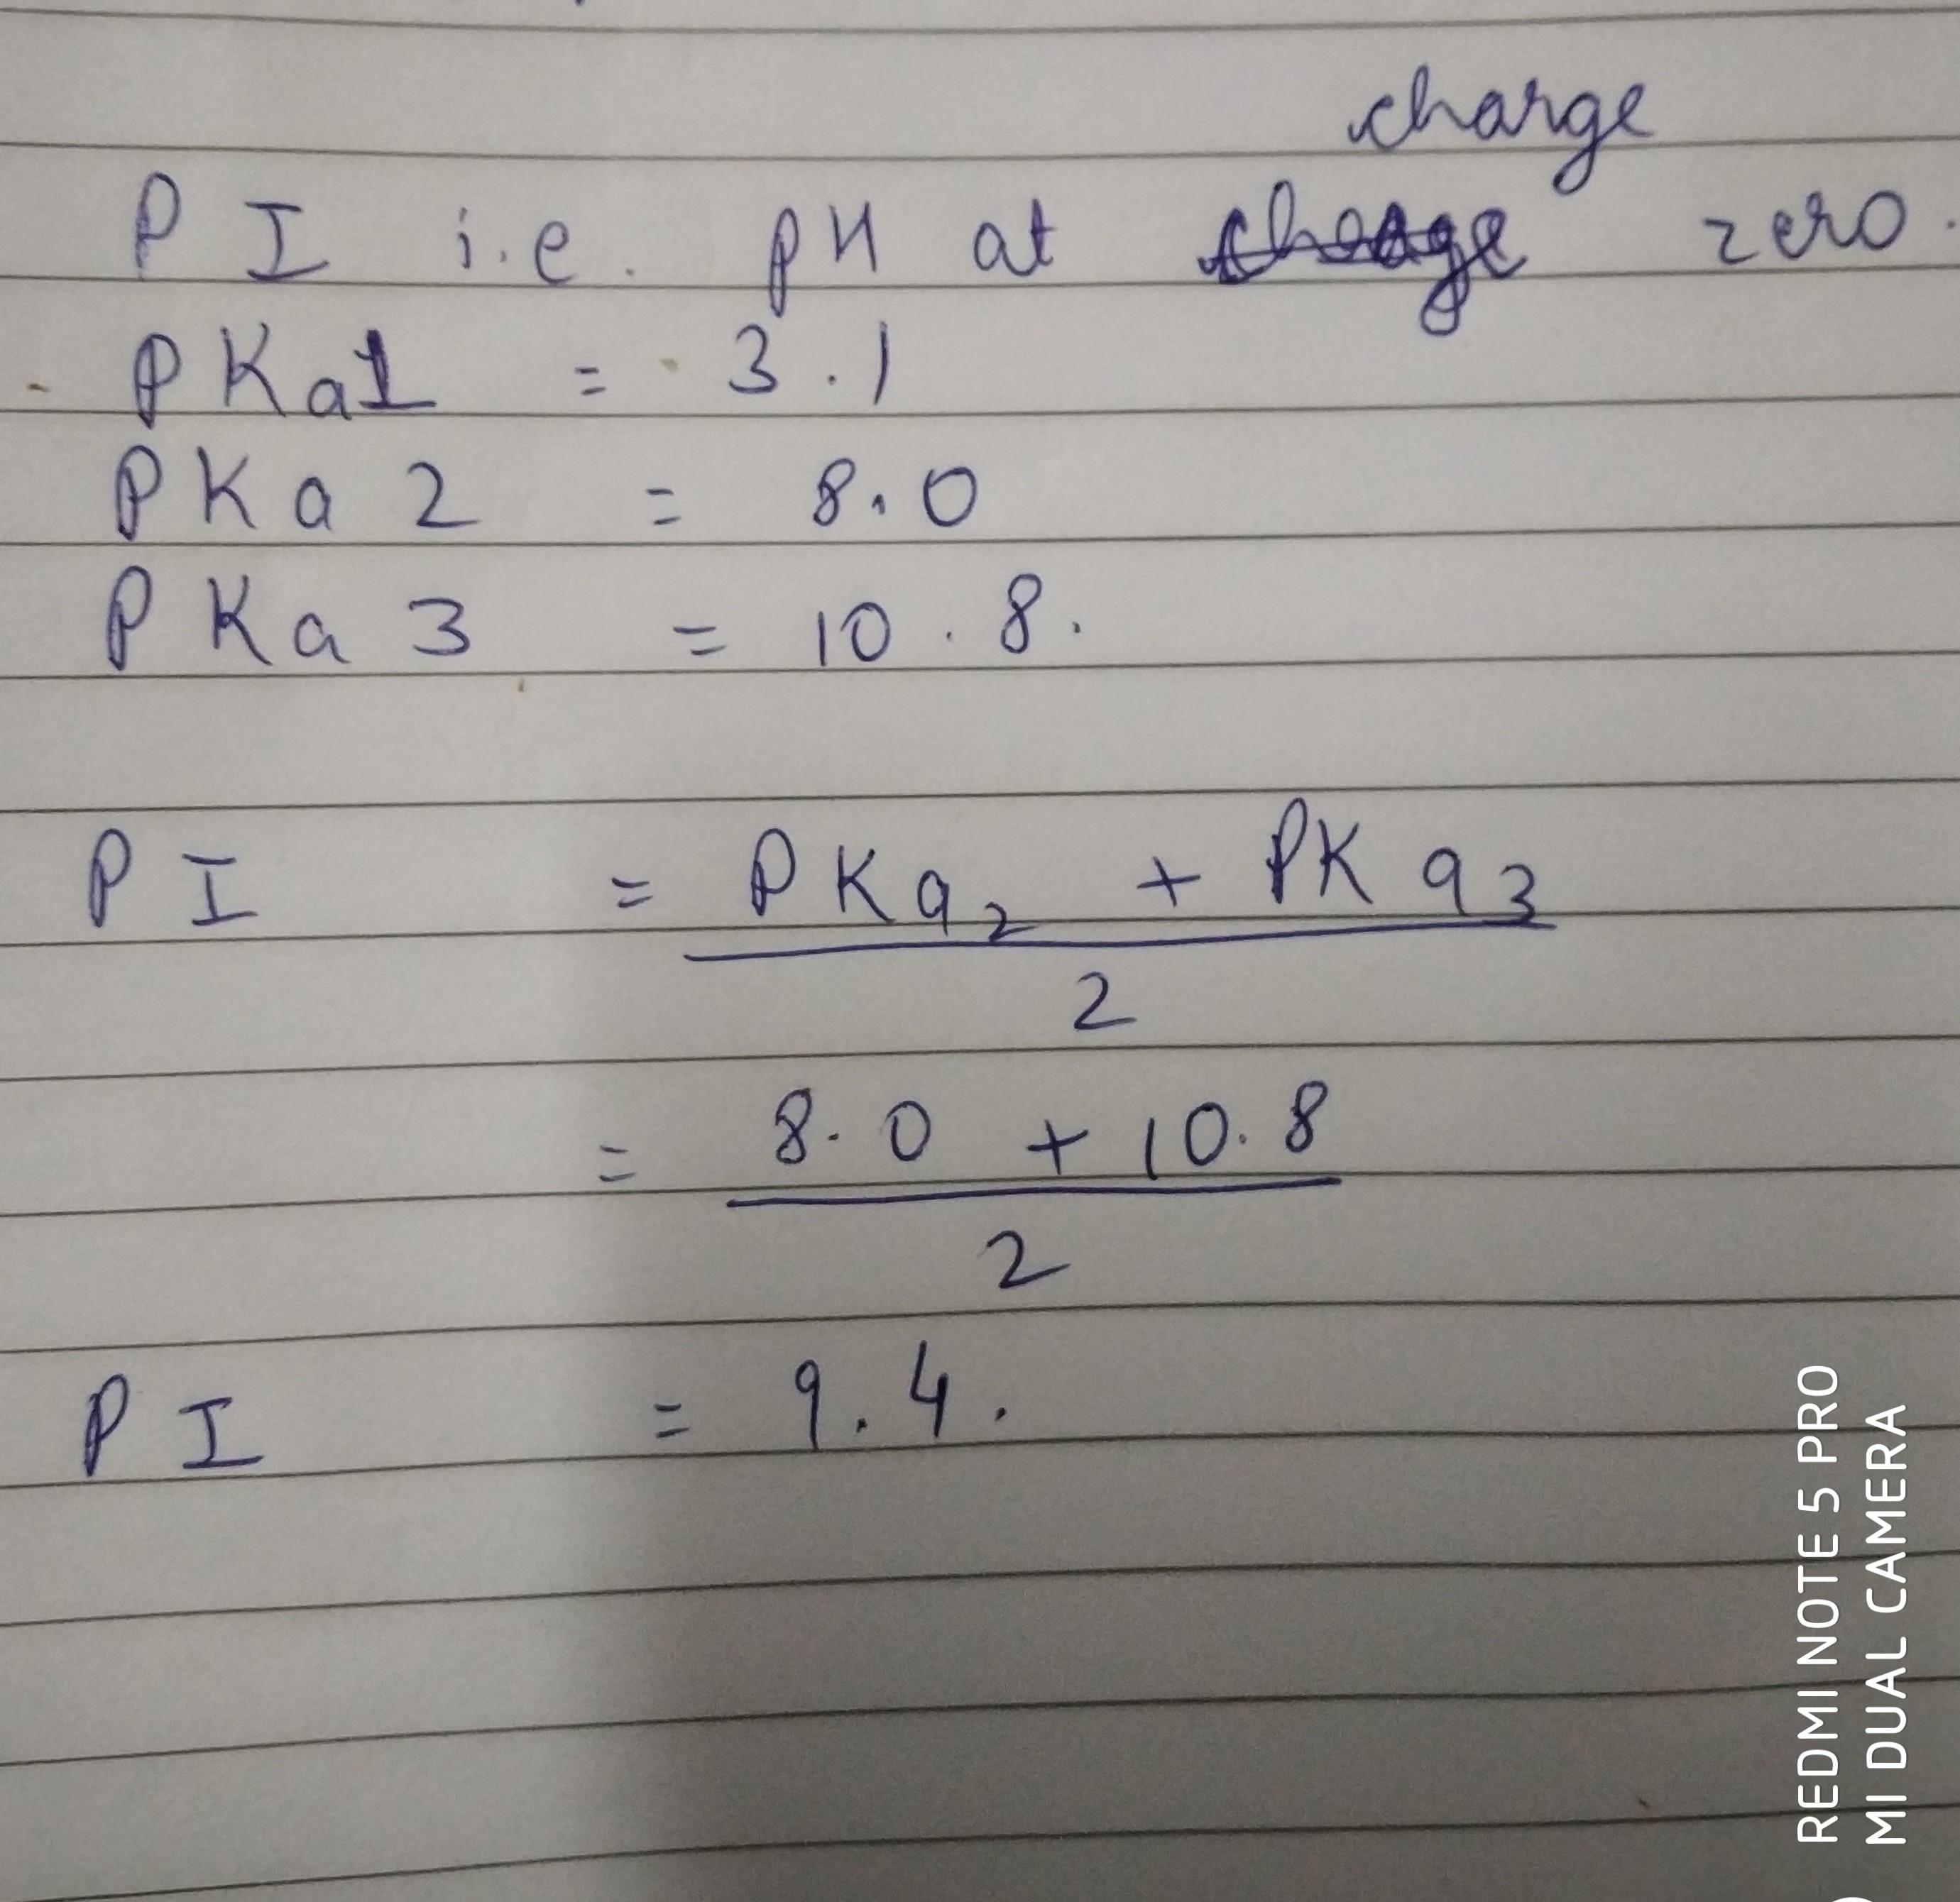 charge
PI i.e. pH at charge zero.
PKa1 = 3.1
PKa2 = 8.0
PKa3 = 10.8.
PI = PKa2 + PKa3
2
= 8.0 + 10.8
2
PI = 9.4.
REDMI NOTE 5 PRO
MI DUAL CAMERA